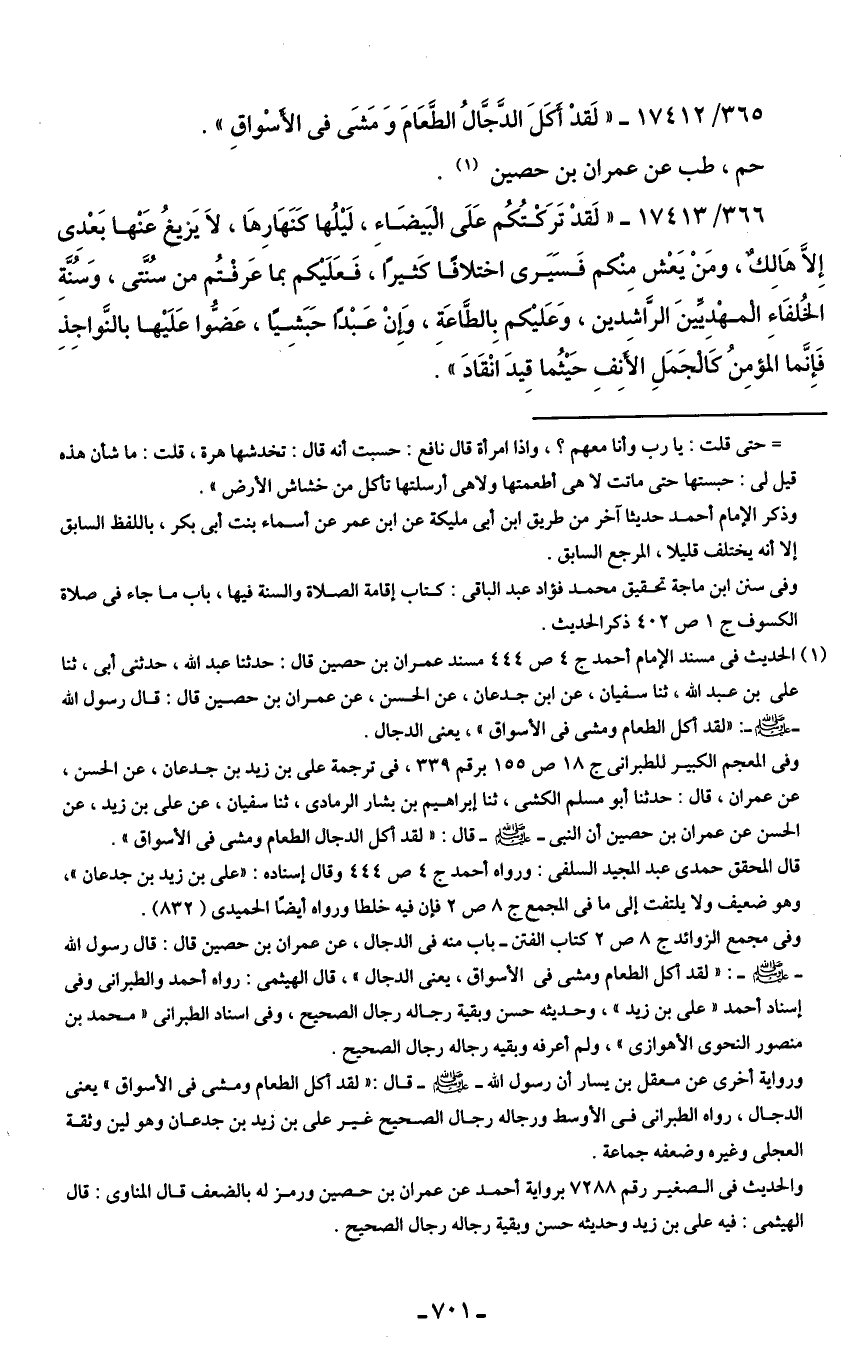 ١٧٤١٢/٣٦٥ ـ « لَقَدْ أَكَلَ الدَّجَّالُ الطَّعَامَ وَ مَشَى فى الأَسْوَاقِ » .
حم ، طب عن عمران بن حصين (١) .
١٧٤١٣/٣٦٦ ـ « لَقَدْ تَرَكْتُكُم عَلَى الْبَيضَاءِ ، لَيْلُها كَنَهَارِهَا ، لاَ يَزيغُ عَنْها بَعْدِى
إِلاَّ هَالِكٌ ، ومَنْ يَعْش مِنْكم فَسَيَرى اختلافًا كَثيرًا ، فَعَلَيْكم بما عَرفْتُم من سُنَّتى ، وَسُنَّةِ
الخُلفَاءِ المهْدِيِّينَ الرَّاشدين ، وَعَليْكم بِالطَّاعَةِ ، وَإِنْ عَبْدًا حَبَشيًا ، عَضُّوا عَلَيْها بالنَّواجِذِ
فَإِنَّما المؤمنُ كَالْجَمَلِ الأَنفِ حَيْثُما قِيدَ انْقَادَ » .
= حتى قلت : يا رب وأنا معهم ؟ ، واذا امرأة قال نافع : حسبت أنه قال : تخدشها هرة ، قلت : ما شأن هذه
قيل لى : حبستها حتى ماتت لا هى أطعمتها ولاهى أرسلتها تأكل من خشاش الأرض » .
وذكر الإمام أحمد حديثا آخر من طريق ابن أبى مليكة عن ابن عمر عن أسماء بنت أبى بكر ، باللفظ السابق
إلا أنه يختلف قليلا ، المرجع السابق .
وفى سنن ابن ماجة تحقيق محمد فؤاد عبد الباقى : كتاب إقامة الصلاة والسنة فيها ، باب ما جاء فى صلاة
الكسوف ج ١ ص ٤٠٢ ذكرالحديث .
(١) الحديث فى مسند الإمام أحمد ج ٤ ص ٤٤٤ مسند عمران بن حصين قال : حدثنا عبد الله ، حدثنى أبى ، ثنا
على بن عبد الله ، ثنا سفيان ، عن ابن جدعان ، عن الحسن ، عن عمران بن حصين قال : قال رسول الله
ـ ﷺ ـ: «لقد أكل الطعام ومشى فى الأسواق » ، يعنى الدجال .
وفى المعجم الكبير للطبرانى ج ١٨ ص ١٥٥ برقم ٣٣٩ ، فى ترجمة على بن زيد بن جدعان ، عن الحسن ،
عن عمران ، قال : حدثنا أبو مسلم الكشى ، ثنا إبراهيم بن بشار الرمادى ، ثنا سفيان ، عن على بن زيد ، عن
الحسن عن عمران بن حصين أن النبى ـ ﷺ ـ قال : « لقد أكل الدجال الطعام ومشى فى الأسواق » .
قال المحقق حمدى عبد المجيد السلفى : ورواه أحمد ج ٤ ص ٤٤٤ وقال إسناده : «على بن زيد بن جدعان »،
وهو ضعيف ولا يلتفت إلى ما فى المجمع ج ٨ ص ٢ فإن فيه خلطا ورواه أيضًا الحميدى ( ٨٣٢ ) .
وفى مجمع الزوائد ج ٨ ص ٢ كتاب الفتن ـ باب منه فى الدجال ، عن عمران بن حصين قال : قال رسول الله
ـ ﷺ ـ : « لقد أكل الطعام ومشى فى الأسواق ، يعنى الدجال » ، قال الهيثمى : رواه أحمد والطبرانى وفى
إسناد أحمد « على بن زيد » ، وحديثه حسن وبقية رجاله رجال الصحيح ، وفى اسناد الطبرانى « محمد بن
منصور النحوى الأهوازى » ، ولم أعرفه وبقيه رجاله رجال الصحيح .
ورواية أخرى عن معقل بن يسار أن رسول الله ـ ﷺ ـ قال :« لقد أكل الطعام ومشى فى الأسواق » يعنى
الدجال ، رواه الطبرانى فى الأوسط ورجاله رجال الصحيح غير على بن زيد بن جدعان وهو لين وثقة
العجلى وغيره وضعفه جماعة .
والحديث فى الصغير رقم ٧٢٨٨ برواية أحمد عن عمران بن حصين ورمز له بالضعف قال المناوى : قال
الهيثمى : فيه على بن زيد وحديثه حسن وبقية رجاله رجال الصحيح .
ـ ٧٠١ ـ